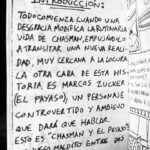 INTRODUCCIÓN:
TODO COMIENZA CUANDO UNA
DESGRACIA MODIFICA LA RUTINARIA
VIDA DE CHASMAN, EMPUJÁNDOLO
A TRANSITAR UNA NUEVA REALI-
DAD, MUY CERCANA A LA LOCURA.
LA OTRA CARA DE ESTA HIS-
TORIA ES MARCOS ZUCKER
(EL PAYASO), UN PERSONAJE
CONTROVERTIDO Y AMBIGUO
QUE DARÁ QUE HABLAR.
ESTO ES "CHASMAN Y EL PAYASO"
JUEGO MALDITO ENTRE DOS